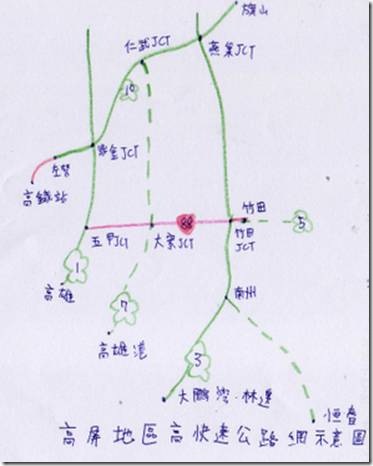 旗山
仁武JCT
燕巢JCT
10
鼎金JCT
左營
高鐵站
竹田
五甲JCT
大寮JCT
88
竹田
JCT
5
1
高雄
7
高雄港
南州
3
大鵬灣·林邊
恒春
高屏地區高快速公路網示意圖